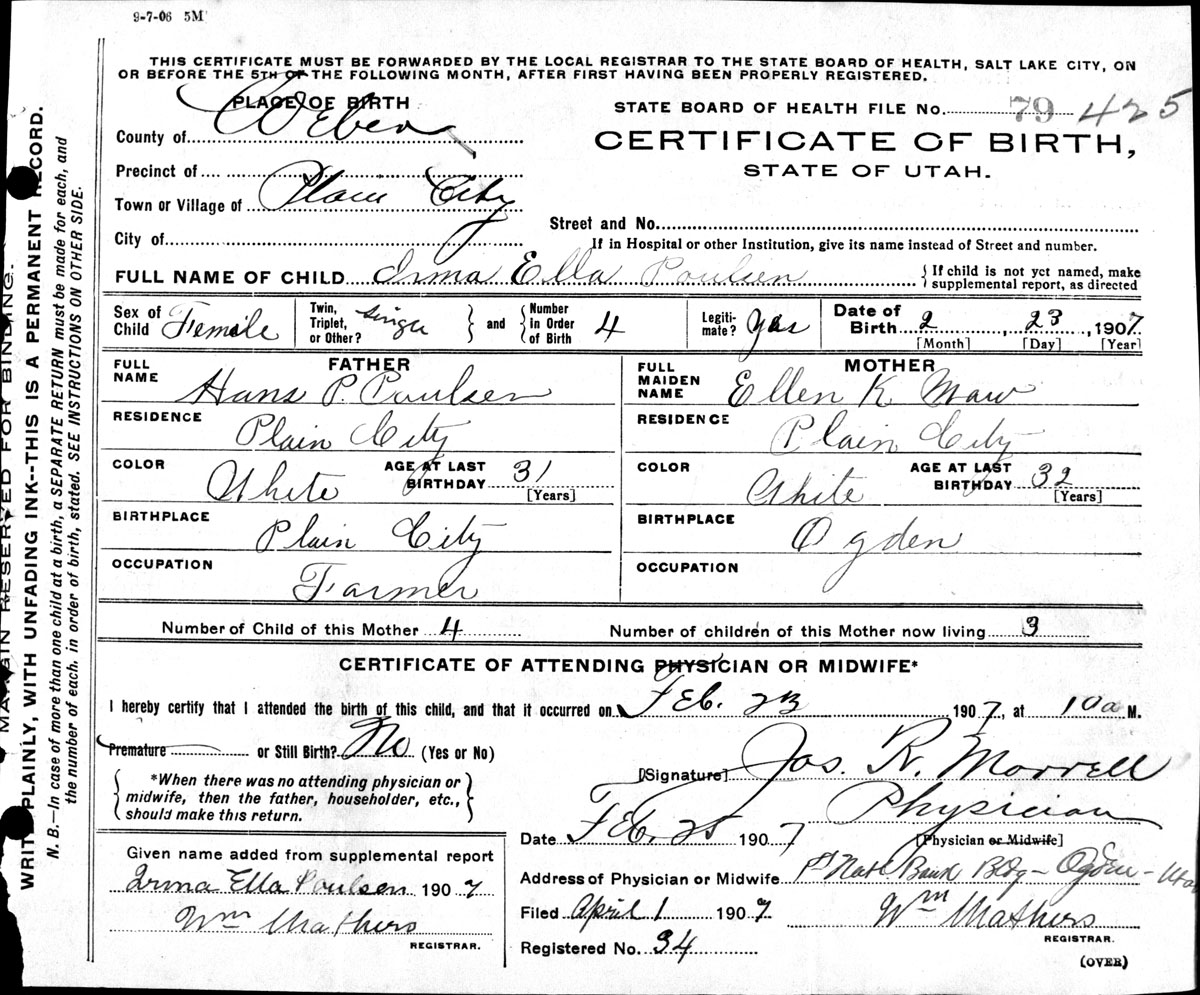 9-7-06 5M
THIS CERTIFICATE MUST BE FORWARDED BY THE LOCAL REGISTRAR TO THE STATE BOARD OF HEALTH, SALT LAKE CITY, ON
OR BEFORE THE 5TH OF THE FOLLOWING MONTH, AFTER FIRST HAVING BEEN PROPERLY REGISTERED.
PLACE OF BIRTH
STATE BOARD OF HEALTH FILE No. 79 425
County of Weber
CERTIFICATE OF BIRTH,
STATE OF UTAH.
Precinct of
Town or Village of Plain City
Street and No.
City of
If in Hospital or other Institution, give its name instead of Street and number.
FULL NAME OF CHILD Irma Ella Poulsen { If child is not yet named, make supplemental report, as directed
Sex of Child Female Twin, Triplet, or Other? Single } and { Number in Order of Birth 4 Legiti- mate? Yes Date of Birth 2, 23, 1907
[Month] [Day] [Year]
FATHER
MOTHER
FULL NAME Hans P. Poulsen
FULL MAIDEN NAME Ellen K Maw
RESIDENCE Plain City
RESIDENCE Plain City
COLOR White AGE AT LAST BIRTHDAY 31 [Years]
COLOR White AGE AT LAST BIRTHDAY 32 [Years]
BIRTHPLACE Plain City
BIRTHPLACE Ogden
OCCUPATION Farmer
OCCUPATION
Number of Child of this Mother 4 Number of children of this Mother now living 3
CERTIFICATE OF ATTENDING PHYSICIAN OR MIDWIFE*
I hereby certify that I attended the birth of this child, and that it occurred on Feb. 23 1907, at 10 a M.
Premature or Still Birth? No (Yes or No)
{ *When there was no attending physician or
midwife, then the father, householder, etc.,
should make this return. }
[Signature] Jos. R. Morrell
Physician
Date Feb. 25 1907 [Physician or Midwife]
Given name added from supplemental report
Irma Ella Poulsen 1907
Wm Mathers
REGISTRAR.
Address of Physician or Midwife 1st Natl Bank Bldg - Ogden - Utah
Filed April 1 1907 Wm Mathers
REGISTRAR.
Registered No. 34
(OVER)
MARGIN RESERVED FOR BINDING.
WRITE PLAINLY, WITH UNFADING INK--THIS IS A PERMANENT RECORD.
N. B.—In case of more than one child at a birth, a SEPARATE RETURN must be made for each, and
the number of each, in order of birth, stated. SEE INSTRUCTIONS ON OTHER SIDE.